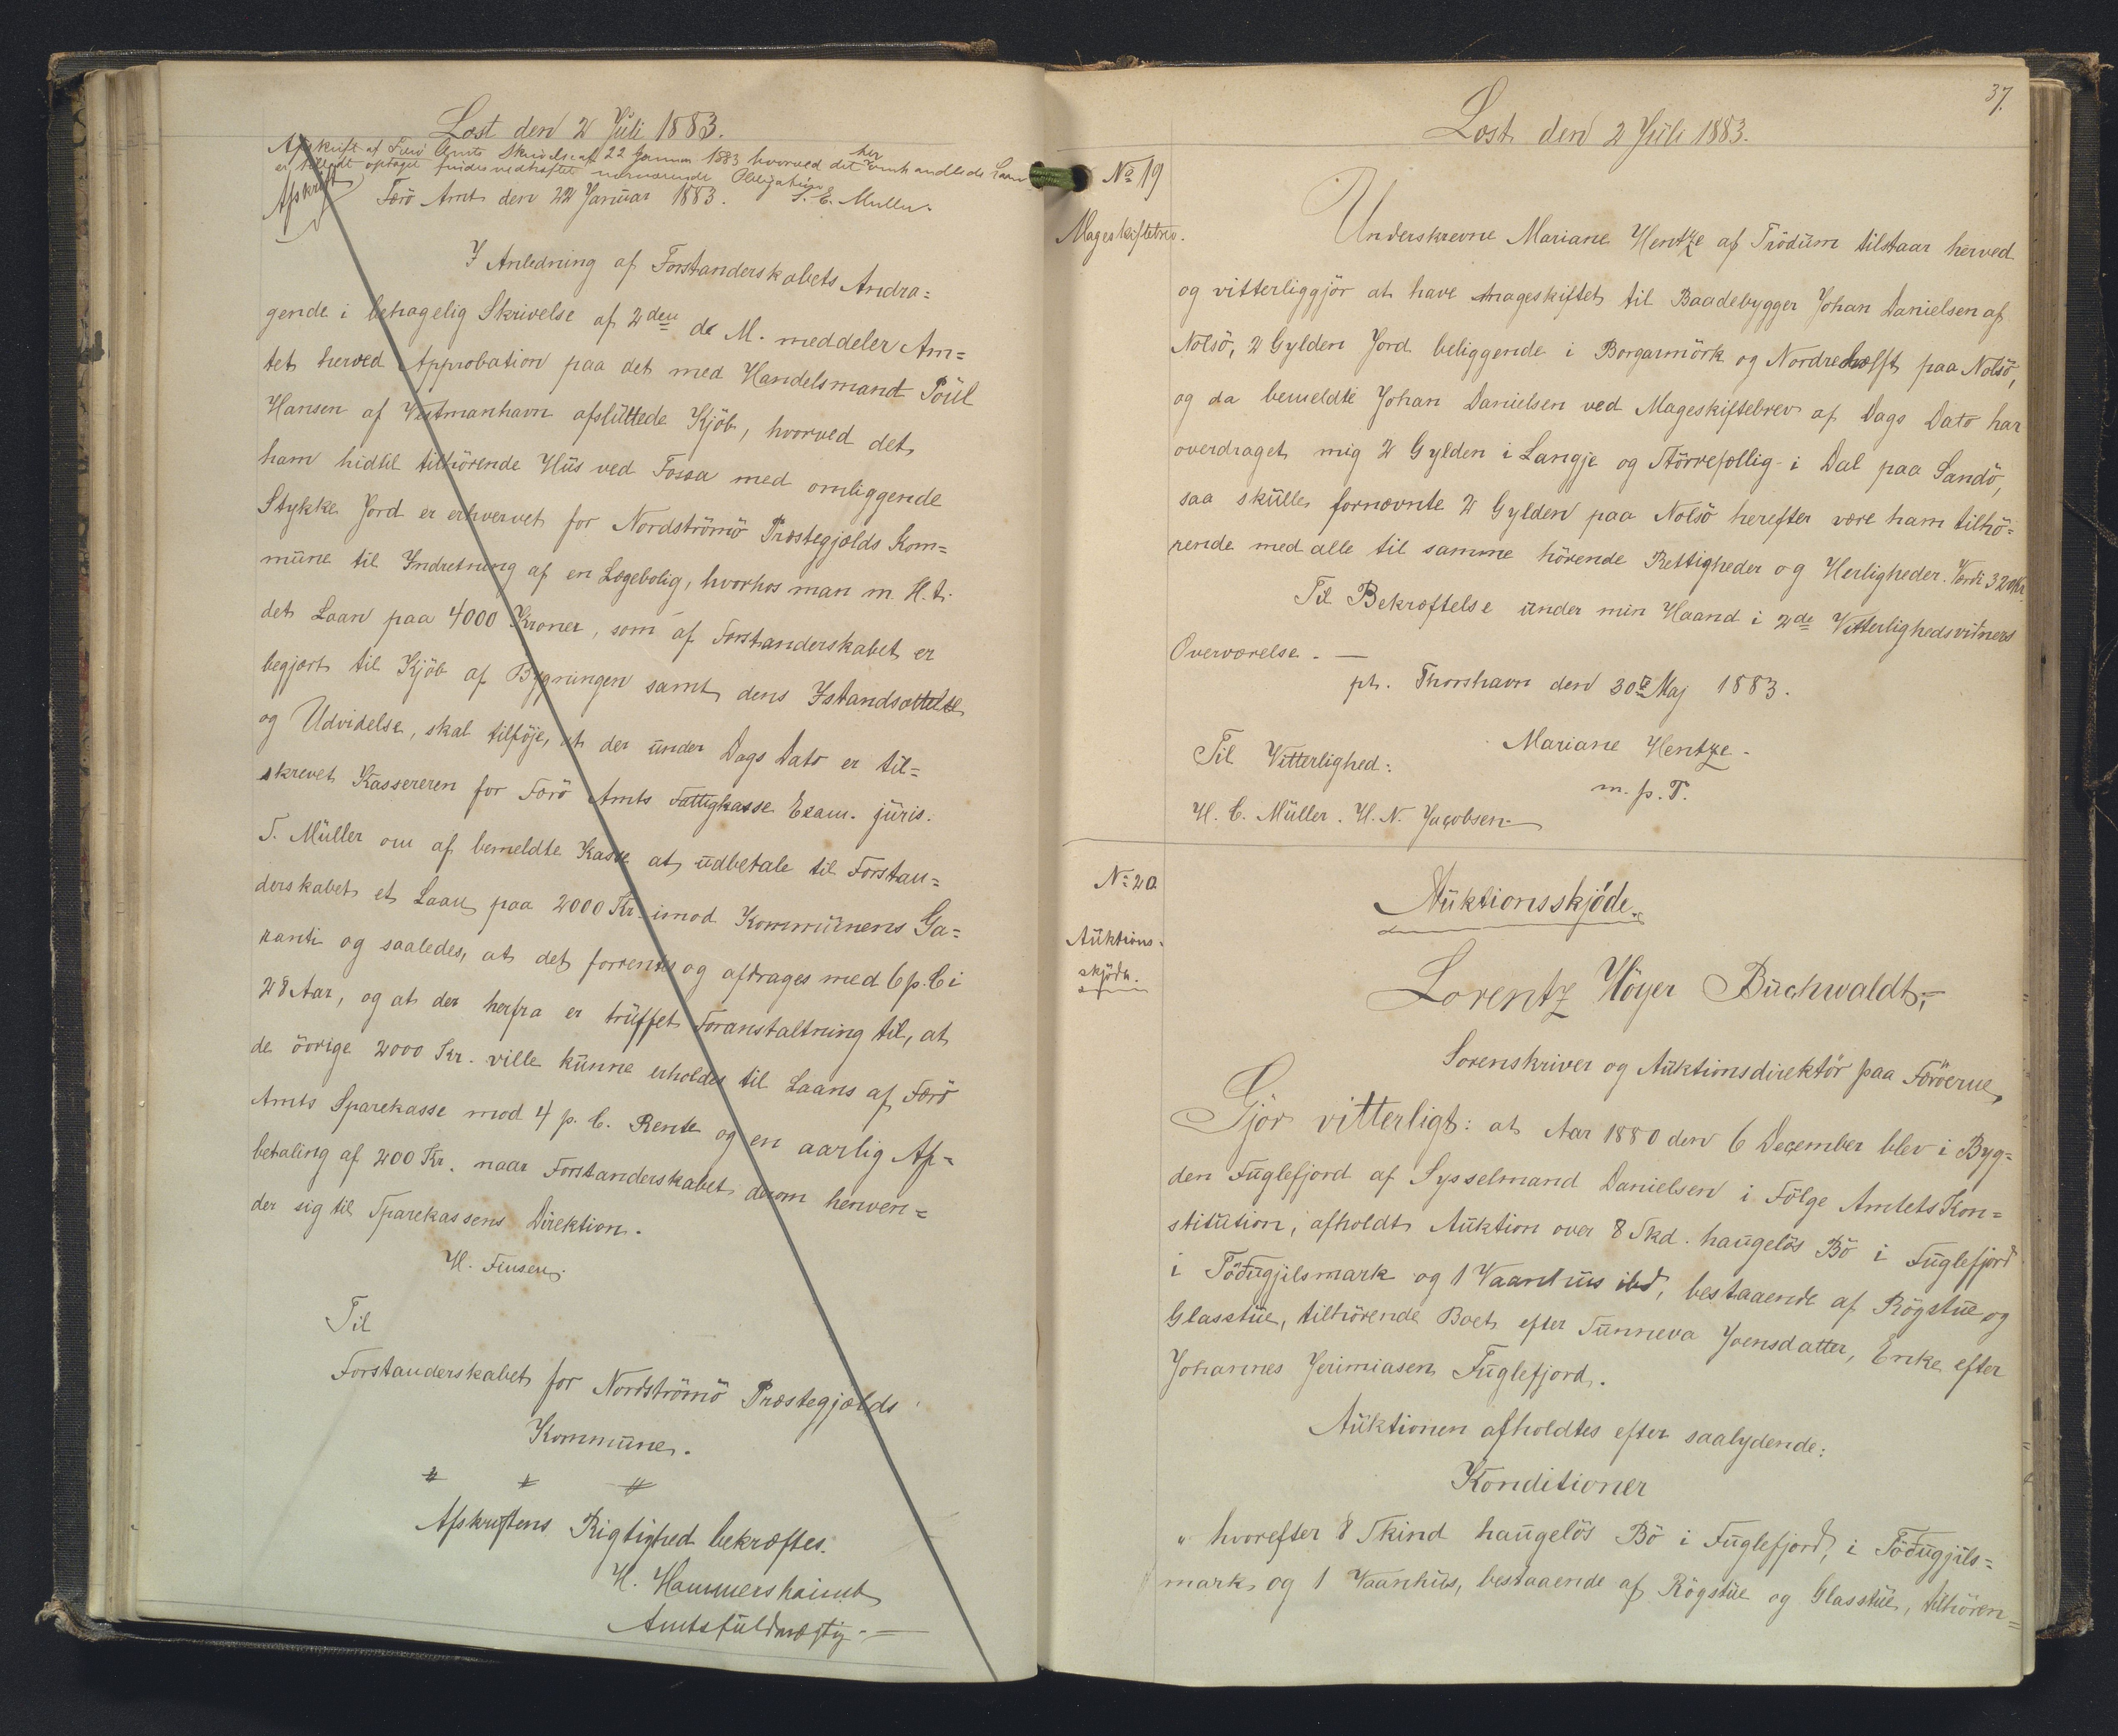 Læst den 2 Juli 1883.
Afskrift af Færø Amts Skrivelse af 22 Januar 1883 hvorved det her omhandlede Laan
er tilladt optaget findes vedhæftet nærværende Obligation.
S. E. Müller.
Afskrift
Færö Amt den 22 Januar 1883.
I Anledning af Forstanderskabets Andra=
gende i behagelig Skrivelse af 2den ds M. meddeler Am=
tet herved Approbation paa det med Handelsmand Poul
Hansen af Vestmanhavn afsluttede Kjöb, hvorved det
ham hidtil tilhörende Hus ved Fossa med omliggende
Stykke Jord er erhvervet for Nordströmö Præstegjælds Kom=
mune til Indretning af en Lægebolig, hvorhos man m. H. t.
det Laan paa 4000 Kroner, som af Forstanderskabet er
begjært til Kjöb af Bygningen samt dens Istandsættelse
og Udvidelse, skal tilföje, at der under Dags Dato er til=
skrevet Kassereren for Færö Amts Fattigkasse Exam. juris.
S. Müller om af bemeldte Kasse at udbetale til Forstan=
derskabet et Laan paa 2000 Kr. imod Kommunens Ga=
ranti og saaledes, at det forrentes og afdrages med 6 p. C i
28 Aar, og at der herfra er truffet Foranstaltning til, at
de övrige 2000 Kr. ville kunne erholdes til Laans af Færö
Amts Sparekasse mod 4 p. C. Rente og en aarlig Af=
betaling af 200 Kr. naar Forstanderskabet derom henven=
der sig til Sparekassens Direktion.
H. Finsen.
Til
Forstanderskabet for Nordströmö Præstegjælds
Kommune.
Afskriftens Rigtighed bekræftes.
H. Hammershaimb
Amtsfuldmægtig.
37.
Læst den 2 Juli 1883.
No 19
Mageskiftebrev.
Underskrevne Mariane Hentze af Trödum tilstaar herved
og vitterliggjör at have mageskiftet til Baadebygger Johan Danielsen af
Nolsö, 2 Gylden Jord beliggende i Borgarmörk og Nordrehælft paa Nolsö,
og da bemeldte Johan Danielsen ved Mageskiftebrev af Dags Dato har
overdraget mig 2 Gylden i Langje og Störrefællig i Dal paa Sandö,
saa skulle fornævnte 2 Gylden paa Nolsö herefter være ham tilhö=
rende med alle til samme hörende Rettigheder og Herligheder. Værdi 320 Kr.
Til Bekræftelse under min Haand i 2de Vitterlighedsvidners
Overværelse.
pt. Thorshavn den 30te Maj 1883.
Mariane Hentze.
m. p. P.
Til Vitterlighed:
H. C. Müller. H. N. Jacobsen
No 20
Auktions-
skjöde.
Auktionsskjöde.
Lorentz Höyer Buchwaldt,
Sorenskriver og Auktionsdirektör paa Færöerne,
Gjör vitterligt: at Aar 1880 den 6 December blev i Byg=
den Fuglefjord af Sysselmand Danielsen i Fölge Amtets Kon=
stitution, afholdt Auktion over 8 Skd. haugelös Bö i Fuglefjord
i Töðugjilsmark og 1 Vaanhus ibd, bestaaende af Rögstue og
Glasstue, tilhörende Boet efter Sunneva Joensdatter, Enke efter
Johannes Jerimiasen Fuglefjord.
Auktionen afholdtes efter saalydende:
Konditioner
" hvorefter 8 Skind haugelös Bö i Fuglefjord, i Töðugjils=
mark og 1 Vaanhus, bestaaende af Rögstue og Glasstue, tilhören=